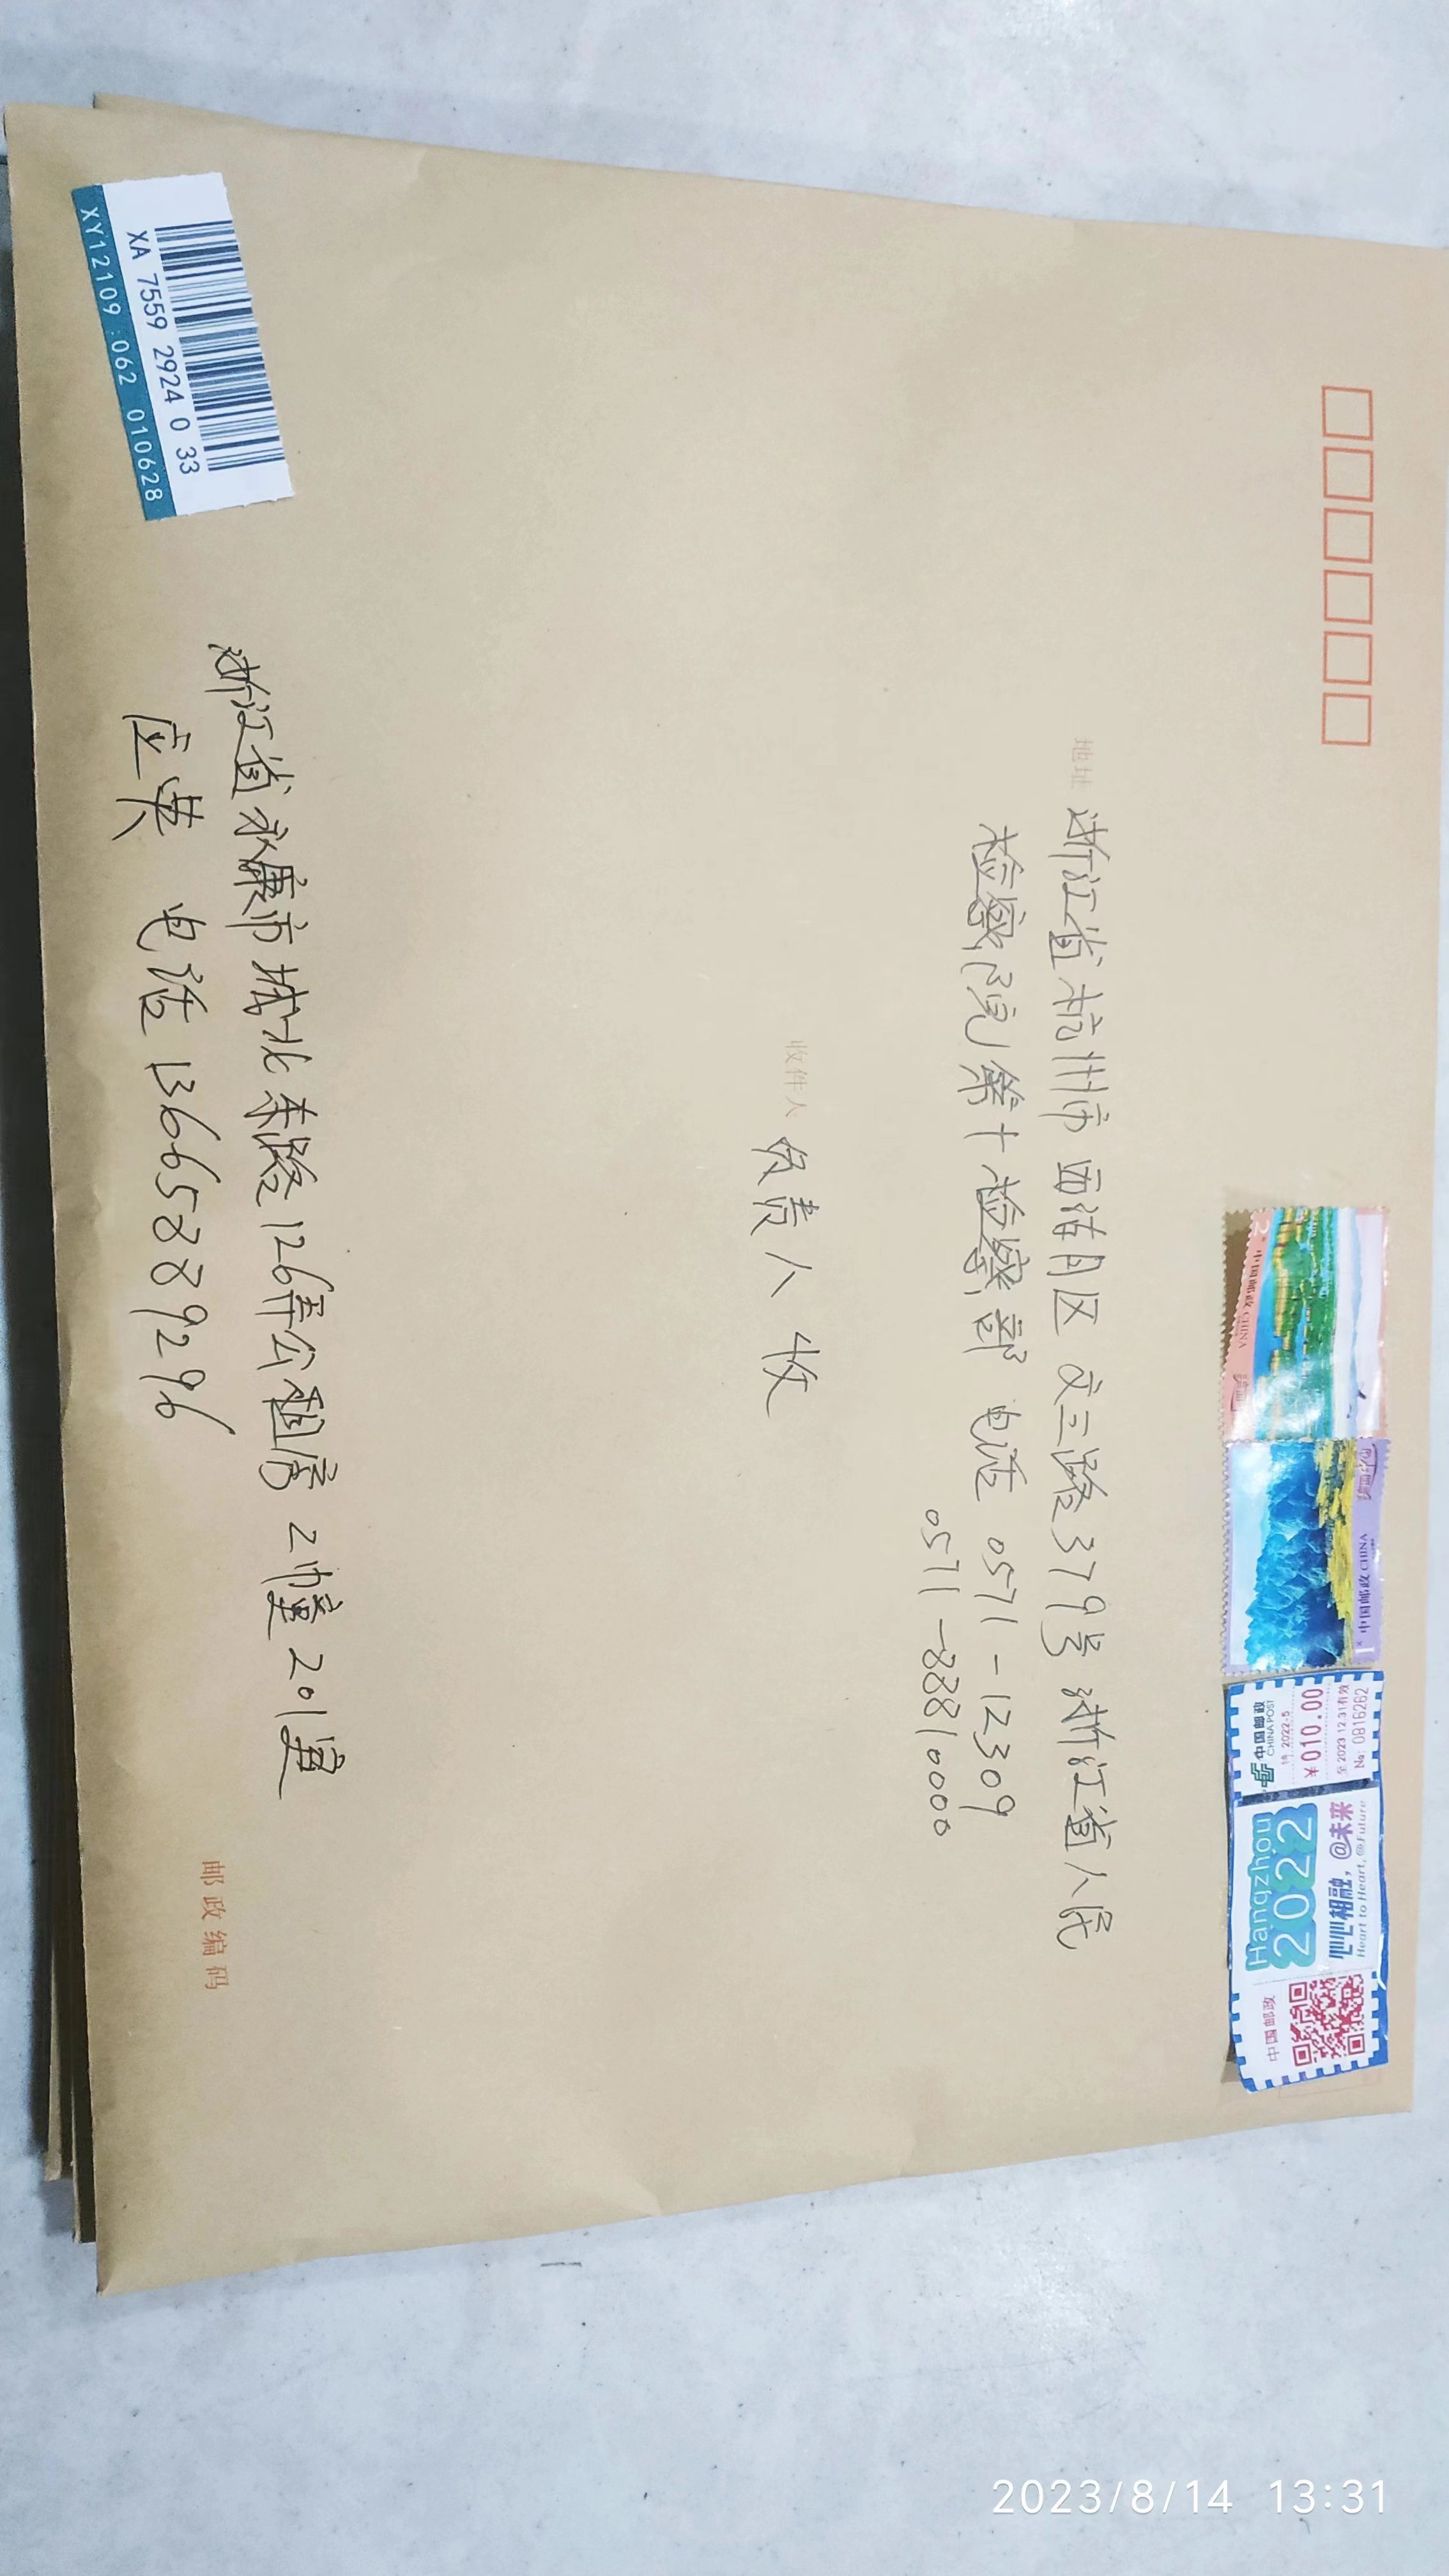 中国邮政 CHINA
中国邮政 CHINA
中国邮政
CHINA POST
2022-5
¥010.00
至2023.12.31有效
No: 0816262
Hangzhou
2022
心心相融，@未来
Heart to Heart, @Future
中国邮政
地址 浙江省杭州市西湖区文三路379号浙江省人民
检察院第十检察部 电话 0571-12309
0571-88810000
收件人 负责人 收
浙江省永康市城北东路126弄公租房2幢201室
应英 电话 13665889296
邮政编码
XA 7559 2924 0 33
XY12109:062 010628
2023/8/14 13:31